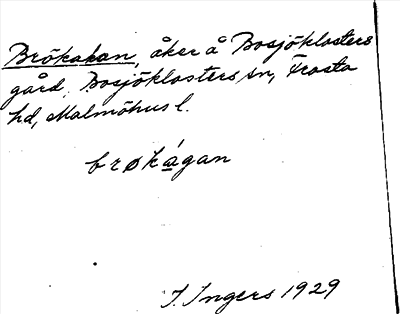 Brökakan, åker å Bosjöklosters
gård, Bosjöklosters sn, Frosta
hd, Malmöhus l.
brøkágan
I. Ingers 1929